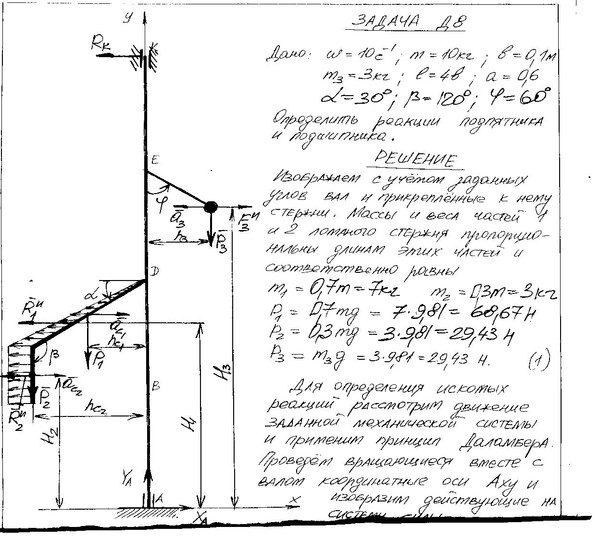 ЗАДАЧА Д8
Дано: ω=10c⁻¹; m=10кг; b=0,1м
m₃=3кг; l=4b; a=0,6
α=30°; β=120°; φ=60°
Определить реакции подпятника
и подшипника.
РЕШЕНИЕ
Изображаем с учётом заданных
углов вал и прикреплённые к нему
стержни. Массы и веса частей 1
и 2 ломаного стержня пропорцио-
нальны длинам этих частей и
соответственно равны
m₁=0,7m=7кг m₂=0,3m=3кг
P₁=0,7mg=7·9,81=68,67Н
P₂=0,3mg=3·9,81=29,43Н
P₃=m₃g=3·9,81=29,43Н. (1)
Для определения искомых
реакций рассмотрим движение
заданной механической системы
и применим принцип Даламбера.
Проведём вращающиеся вместе с
валом координатные оси Axy и
изобразим действующие на
систему силы
y
R_K
E
φ
a₃
F₃ᴵᴵ
P₃
h₃
D
α
R₁ᴵᴵ
a_c₁
h_c₁
P₁
β
a_c₂
P₂
R₂ᴵᴵ
h_c₂
B
H₂
H₁
H₃
Y_A
A
X_A
x